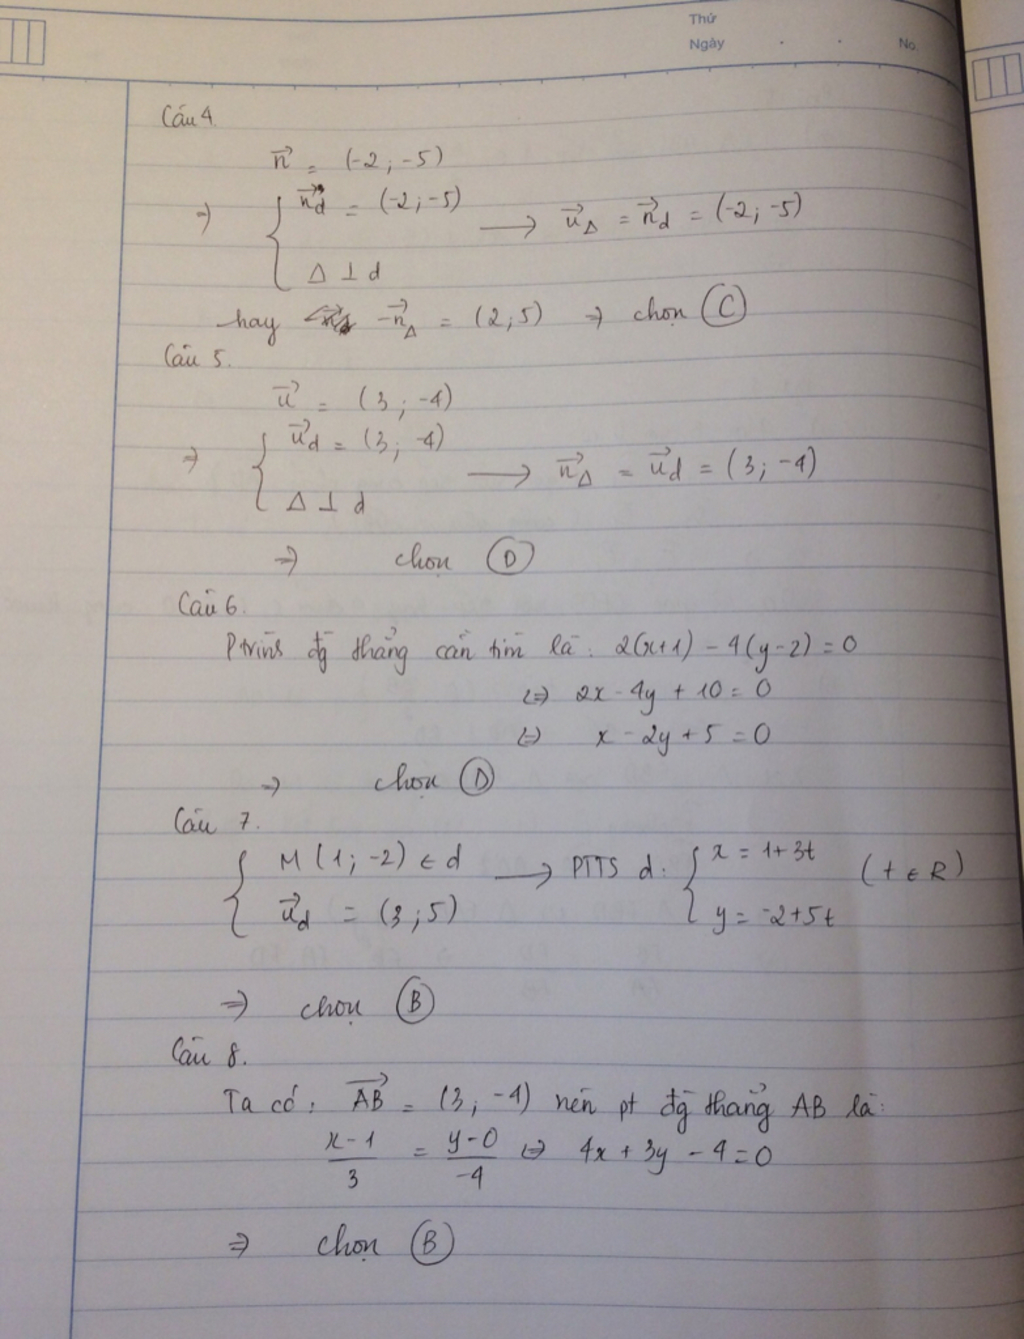 Thứ
Ngày . . No.
Câu 4.
n⃗ = (-2; -5)
⇒ { n⃗d = (-2; -5) → u⃗Δ = n⃗d = (-2; -5)
Δ ⊥ d
hay -n⃗Δ = (2; 5) ⇒ chọn C
Câu 5.
u⃗ = (3; -4)
⇒ { u⃗d = (3; -4) → n⃗Δ = u⃗d = (3; -4)
Δ ⊥ d
⇒ chọn D
Câu 6.
Ptrình đg thẳng cần tìm là: 2(x+1) - 4(y-2) = 0
⇔ 2x - 4y + 10 = 0
⇔ x - 2y + 5 = 0
⇒ chọn D
Câu 7.
{ M(1; -2) ∈ d → PTTS d: { x = 1+3t (t ∈ R)
u⃗d = (3; 5) y = -2+5t
⇒ chọn B
Câu 8.
Ta có: AB⃗ = (3; -4) nên pt đg thẳng AB là:
x-1/3 = y-0/-4 ⇔ 4x + 3y - 4 = 0
⇒ chọn B